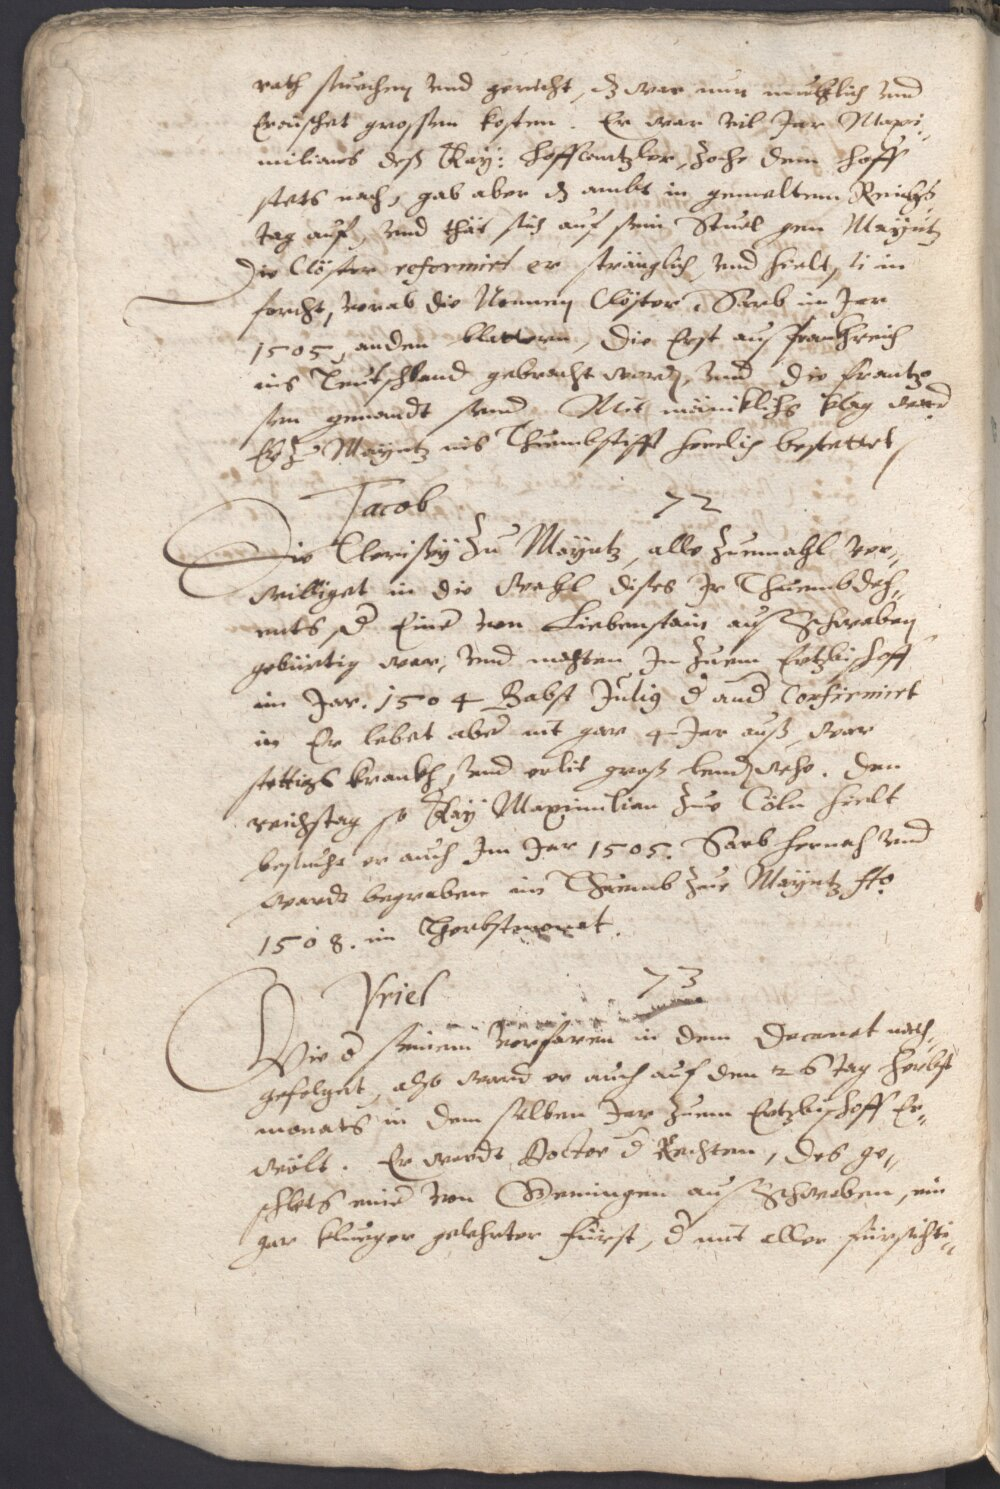 rath suechen vnd gericht, dz war nun mühelich vnd
grossem kosten. Er war vil Jar Maxi„
milians deß Kay: Hoffcantzler, zoche dem Hoff
stets nach, gab aber dz ambt in gemeltem Reichs„
tag auf, vnd thät sich auf sein Stuel gen Mayntz
Die Clöster reformirt er stränglich, vnd hielt si in
forcht, vorab die Nonnen Clöster, Starb im Jar
1505, an den blattern, die Erst aus Frankhreich
ins Teutschland gebracht word, vnd die Frantzo
sen genandt sind. Mit mäniklichs klag ward
Er zu Mayntz ins Thumbstifft herrlich bestettet
Jacob 72
Die Clerisey zu Mayntz, alle zuemahl ver„
williget in die Wahl dises Jr Thuembdech„
ents, d Einer von Liebenstain aus Schwaben
gebürtig war, vnd machten Jn zuem Ertzbischoff
im Jar. 1504 Babst Julius d and Confirmirt
in Er lebet aber nit gar 4 Jar auß, war
stettigs krankh, vnd erlit groß lendwehe. Den
reichstag so Kay Maximilian zue Cöln hielt
besucht er auch Jm Jar 1505. Starb hernach vnd
wardt begraben im Thuemb zue Mayntz Ao.
1508. im Herbstmonat.
Vriel 73
Wie er seinem vorfaren in dem Decanat nach„
gefolget, also ward er auch auf den 26 tag Herbst
monats in dem selben Jar zuem Ertzbischoff Er„
wölt. Er wardt Doctor d Rechten, des ge„
schlets einer von Gemingen aus Schwaben, ein
gar kluoger gelehrter fürst, d mit aller fürsichti„